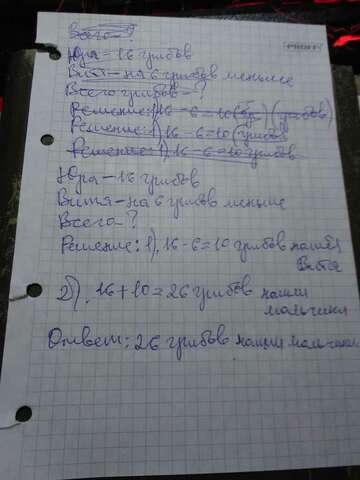 Всего-?
Юра-16 грибов
Витя-на 6 грибов меньше
Всего грибов-?
Решение: 1) 16-6=10 (гр) (грибов)
Решение: 1) 16-6=10 (грибов
Решение: 1) 16-6=10 грибов
Юра-16 грибов
Витя-на 6 грибов меньше
Всего-?
Решение: 1). 16-6=10 грибов нашёл
Витя
2). 16+10=26 грибов нашли
мальчики
Ответ: 26 грибов нашли мальчики